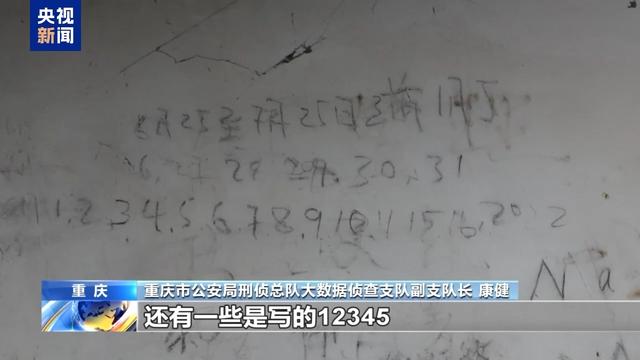 央视
新闻
月25至7月25日
30.31
1.2.3.4.5.6.7.8.9.10.11 15 16.20
Na
重庆
重庆市公安局刑侦总队大数据侦查支队副支队长 康健
还有一些是写的12345